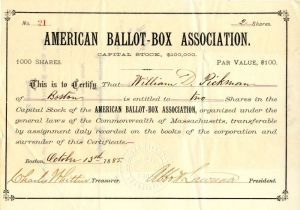 No. 21 2 Shares.
AMERICAN BALLOT-BOX ASSOCIATION.
CAPITAL STOCK, $100,000.
1000 SHARES. PAR VALUE, $100.
This is to Certify That William D. Pickman
of Boston is entitled to two Shares in the
Capital Stock of the AMERICAN BALLOT-BOX ASSOCIATION, organized under the
general laws of the Commonwealth of Massachusetts, transferable
by assignment duly recorded on the books of the corporation and
surrender of this Certificate.
Boston, October 13th 1885
Charles Whittier Treasurer. President.